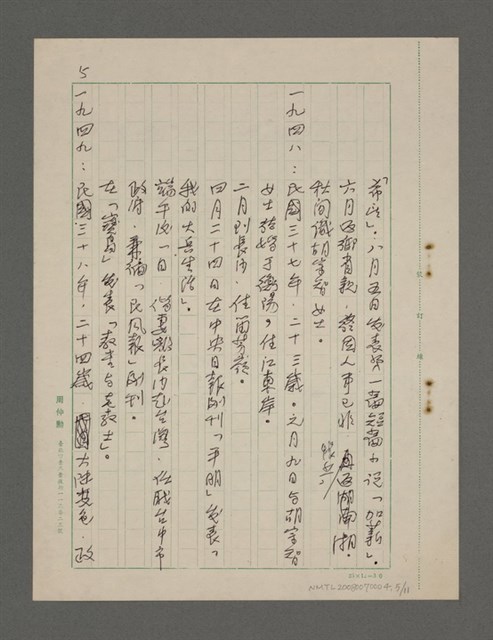 「希望」. 八月五日發表第一篇短篇小說「加薪」.
六月返鄉省親. 發因人事已非. 再返湖南湘.
秋間識胡學智女士.
一九四八：民國三十七年. 二十三歲. 元月九日与胡學智
女士結婚于衡陽，住江東岸.
二月到長沙. 住蘭芳嶺.
四月二十四日在中央日報副刊「平明」發表「
我的大兵生活」.
端午次一日. 偕妻離長沙赴台灣. 任職台中市
政府. 兼編「民風報」副刊.
在「寶島」發表「教書与老教士」.
一九四九：民國三十八年. 二十四歲. 大陸變色. 政
5
周仲勳
裝 訂 線
NMTL20080070004, 5/11